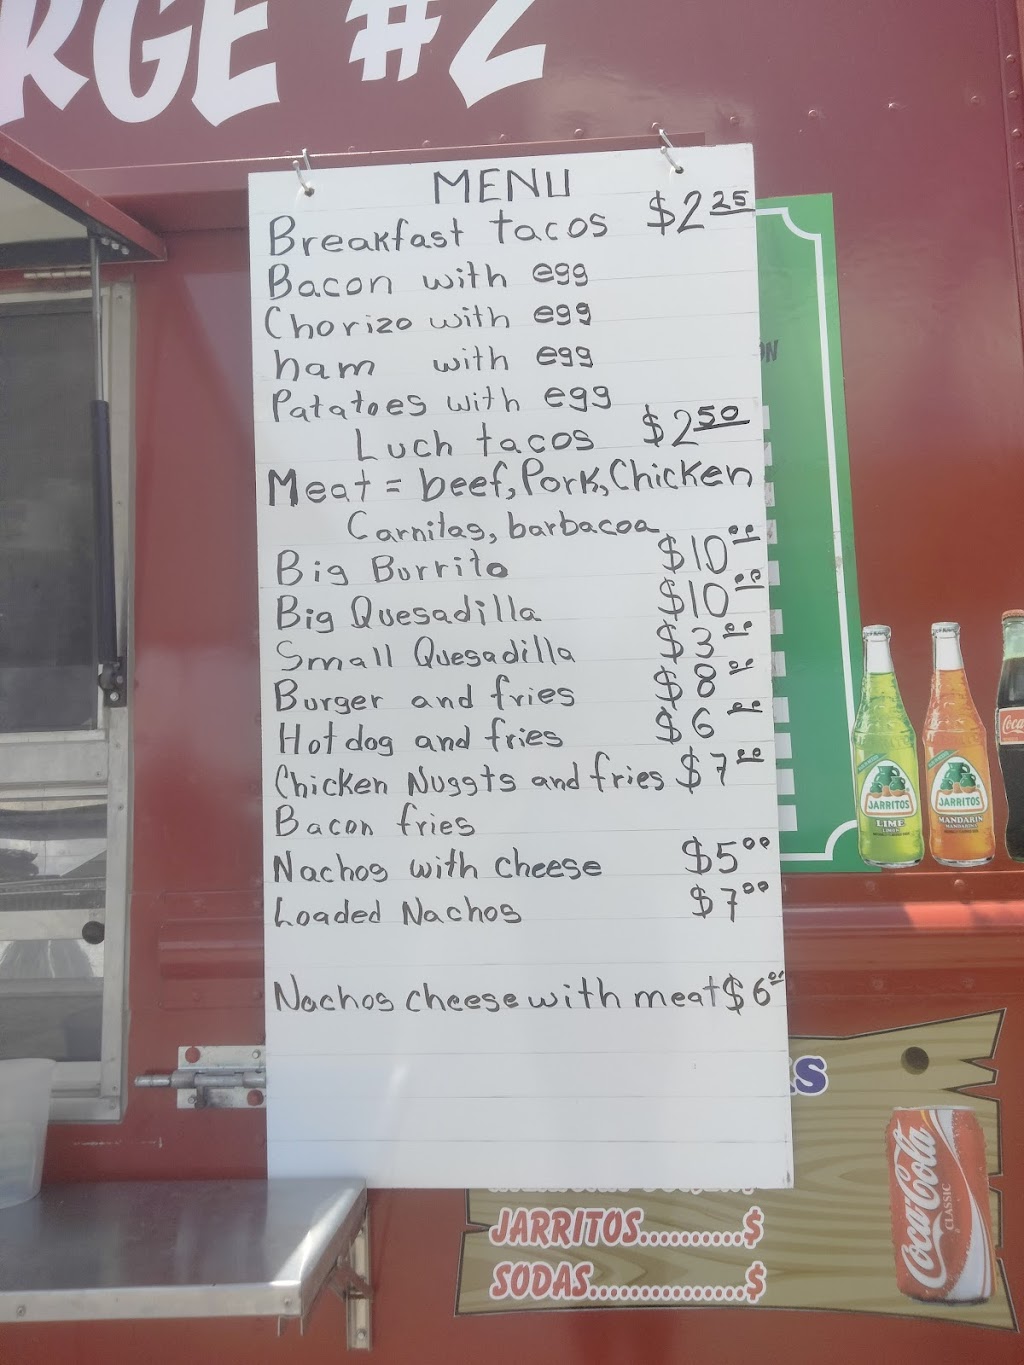 RGE #2
MENU
Breakfast tacos $2.25
Bacon with egg
Chorizo with egg
ham with egg
Patatoes with egg
Luch tacos $2.50
Meat = beef, Pork, Chicken
Carnitas, barbacoa
Big Burrito $10.00
Big Quesadilla $10.00
Small Quesadilla $3.00
Burger and fries $8.00
Hotdog and fries $6.00
Chicken Nuggts and fries $7.00
Bacon fries
Nachos with cheese $5.00
Loaded Nachos $7.00
Nachos cheese with meat $6.00
ON
JARRITOS
LIME
JARRITOS
MANDARIN
Coca
KS
JARRITOS..........$
SODAS...............$
Coca-Cola
CLASSIC